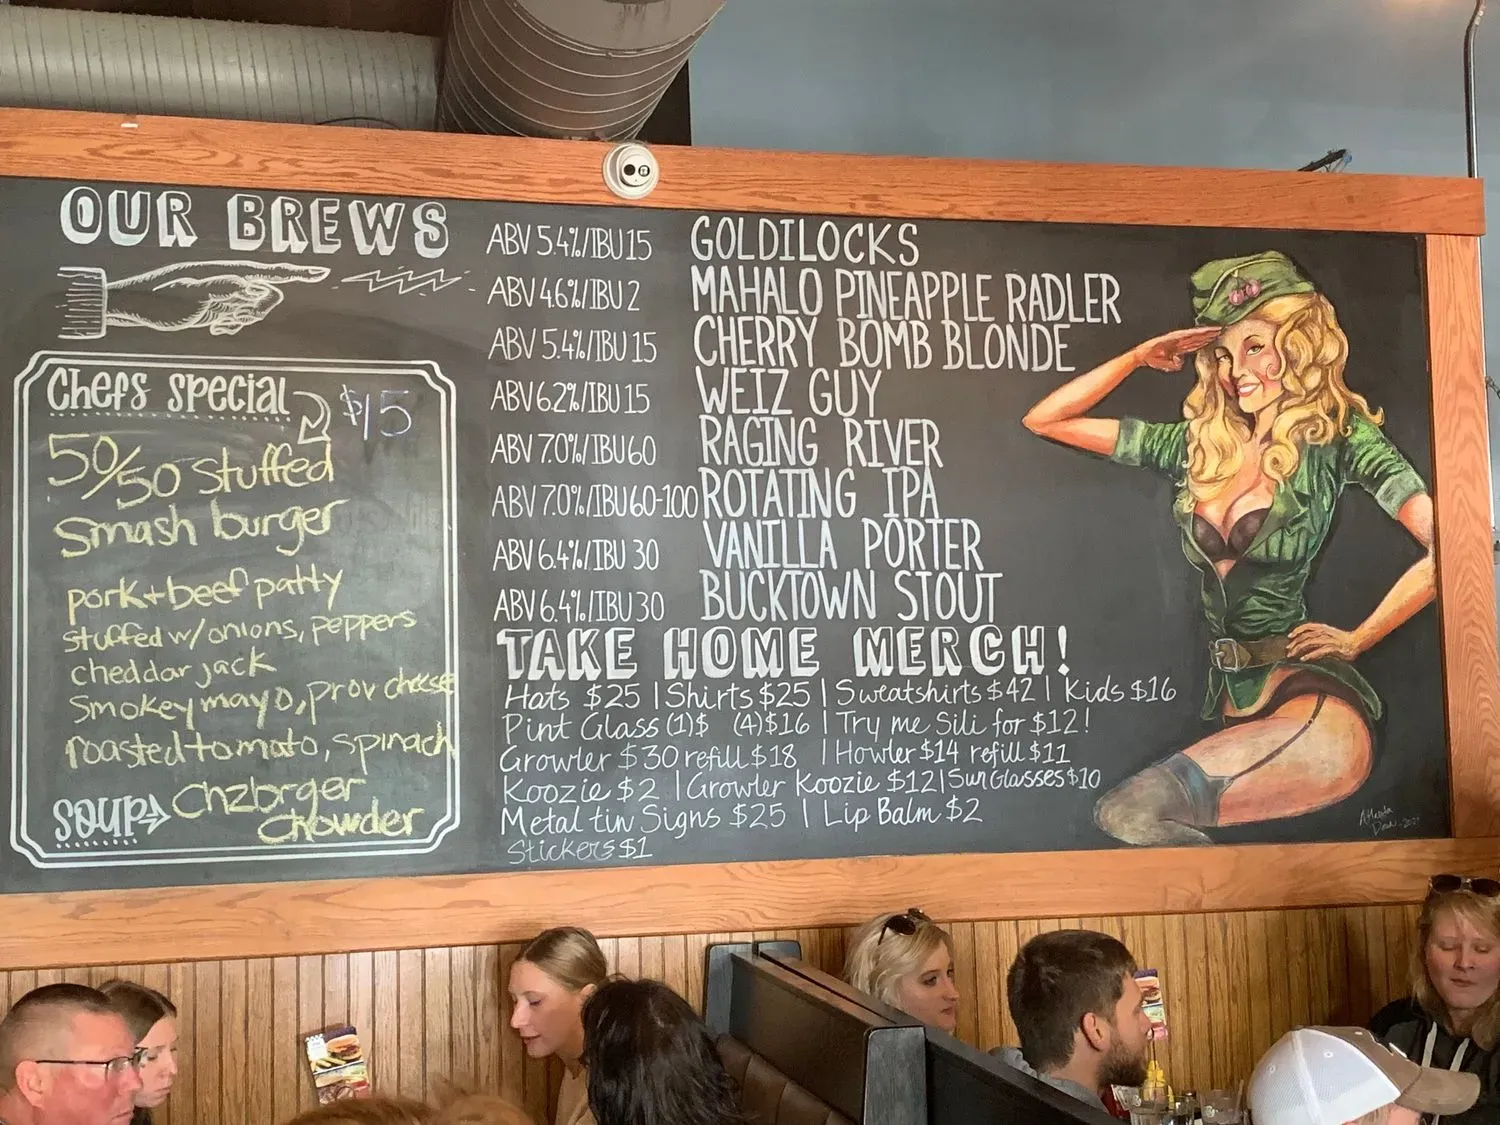 OUR BREWS
Chefs Special $15
50/50 stuffed
Smash burger
pork+beef patty
stuffed w/onions, peppers
cheddar jack
Smokey mayo, prov cheese
roasted tomato, spinach
SOUP Chzbrger
Chowder
ABV 5.4%/IBU 15 GOLDILOCKS
ABV 4.6%/IBU 2 MAHALO PINEAPPLE RADLER
ABV 5.4%/IBU 15 CHERRY BOMB BLONDE
ABV 6.2%/IBU 15 WEIZ GUY
ABV 7.0%/IBU 60 RAGING RIVER
ABV 7.0%/IBU 60-100 ROTATING IPA
ABV 6.4%/IBU 30 VANILLA PORTER
ABV 6.4%/IBU 30 BUCKTOWN STOUT
TAKE HOME MERCH!
Hats $25 | Shirts $25 | Sweatshirts $42 | Kids $16
Pint Glass (1)$ (4)$16 | Try me Sili for $12!
Growler $30 refill $18 | Howler $14 refill $11
Koozie $2 | Growler Koozie $12 | SunGlasses $10
Metal tin Signs $25 | Lip Balm $2
Stickers $1